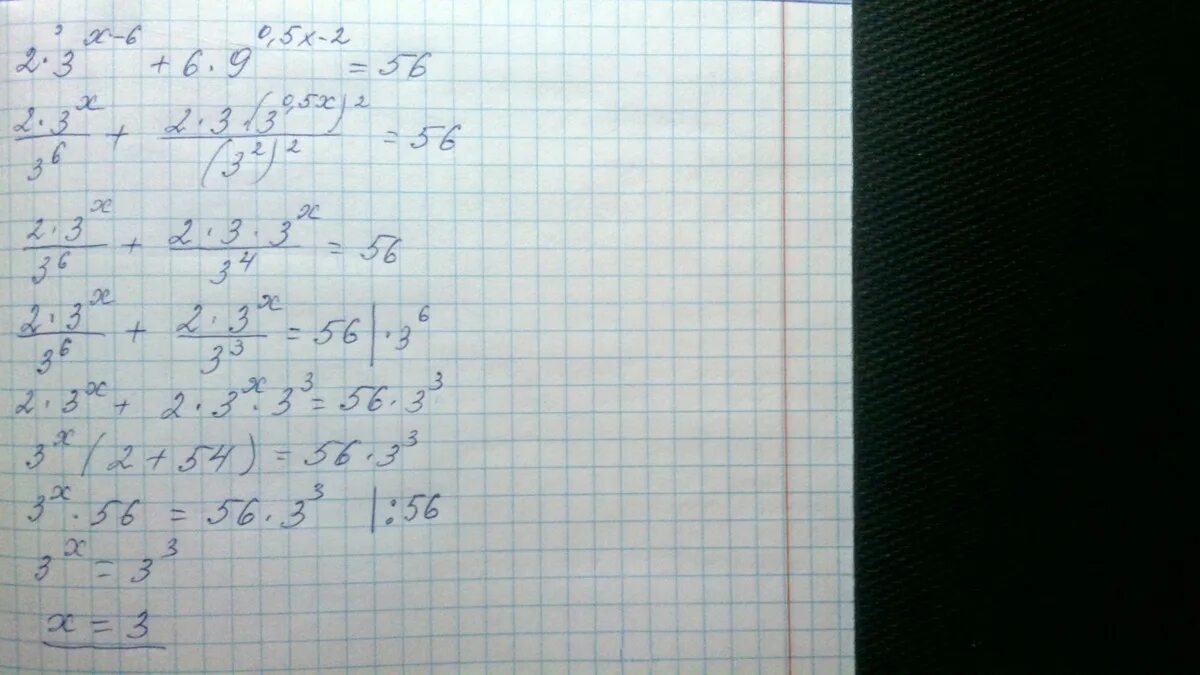 2·3^(x-6) + 6·9^(0,5x-2) = 56
(2·3^x)/(3^6) + (2·3·(3^(0,5x))^2)/((3^2)^2) = 56
(2·3^x)/(3^6) + (2·3·3^x)/(3^4) = 56
(2·3^x)/(3^6) + (2·3^x)/(3^3) = 56 |·3^6
2·3^x + 2·3^x·3^3 = 56·3^3
3^x (2 + 54) = 56·3^3
3^x·56 = 56·3^3 |:56
3^x = 3^3
x = 3